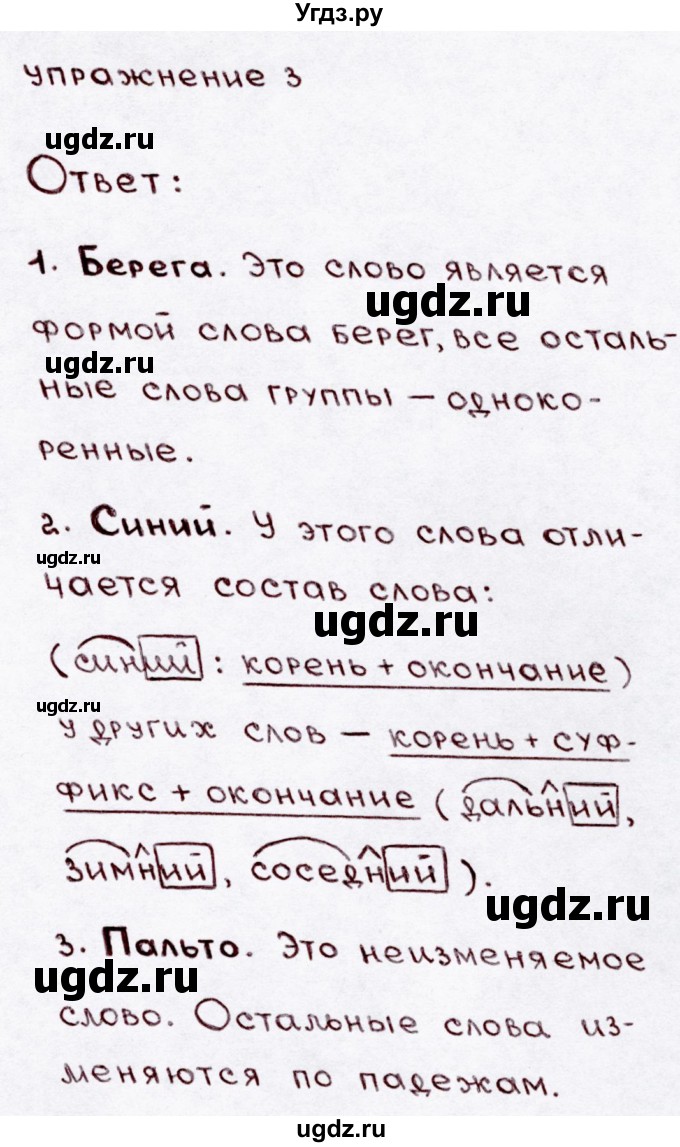 Угдз.ру
упражнение 3
ugdz.ru
Ответ:
1. Берега. Это слово является
ugdz.ru
формой слова берег, все осталь-
ugdz.ru
ные слова группы – одноко-
ренные.
2. Синий. У этого слова отли-
ugdz.ru
чается состав слова:
ugdz.ru
(синий : корень + окончание)
ugdz.ru
у других слов – корень + суф-
фикс + окончание (дальний,
зимний, соседний).
ugdz.ru
3. Пальто. Это неизменяемое
ugdz.ru
слово. Остальные слова из-
меняются по падежам.
ugdz.ru